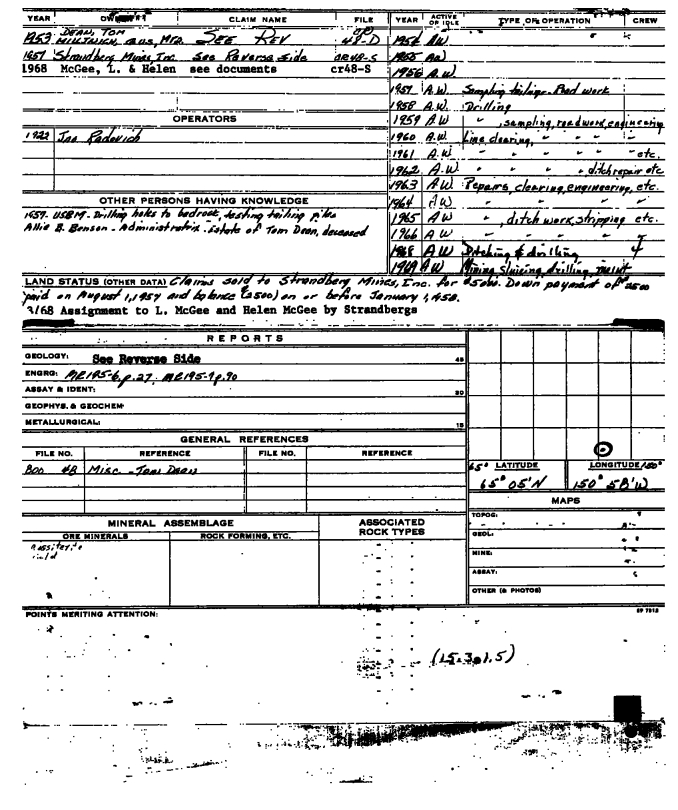 YEAR OWNER CLAIM NAME FILE
1953 DEAN, TOM SEE REV 48-D
1957 Strandberg Mines, Inc. See Reverse side CR48-S
1968 McGee, L. & Helen see documents cr48-S
OPERATORS
1922 Joe Radovich
OTHER PERSONS HAVING KNOWLEDGE
1957. USBM - Drilling holes to bedrock, testing tailing piles
Allie B. Benson - Administratrix. Estate of Tom Dean, deceased
YEAR ACTIVE OR IDLE TYPE OF OPERATION CREW
1954 AW
1955 AW
1956 A.W
1957 A.W. Sampling tailings - Road work
1958 A.W. Drilling
1959 A.W " , sampling, roadwork, engineering
1960 A.W Line clearing, " " "
1961 A.W " " " " etc.
1962 A.W " " " ditch repair etc
1963 AW Repairs, clearing, engineering, etc.
1964 AW
1965 AW " , ditch work, stripping etc.
1966 AW
1968 AW Ditching & drilling 4
1969 AW Mining, sluicing, drilling,
LAND STATUS (OTHER DATA) Claims sold to Strandberg Mines, Inc. for Down payment of $2500
paid on August 1, 1957 and balance ($2500) on or before January 1, 1958.
3/68 Assignment to L. McGee and Helen McGee by Strandbergs
REPORTS
GEOLOGY: See Reverse Side 45
ENGRG: ME195-6, p.27, ME195-9 p.90
ASSAY & IDENT: 30
GEOPHYS. & GEOCHEM:
METALLURGICAL: 15
GENERAL REFERENCES
FILE NO. REFERENCE FILE NO. REFERENCE
Box 48 Misc. - Tom Dean
65° LATITUDE LONGITUDE 150°
65° 05'N 150° 58'W
MAPS
TOPOG:
GEOL:
MINE:
ASSAY:
OTHER (& PHOTOS)
MINERAL ASSEMBLAGE ASSOCIATED ROCK TYPES
ORE MINERALS ROCK FORMING, ETC.
Cassiterite
Gold
POINTS MERITING ATTENTION:
(15.3, 1.5)